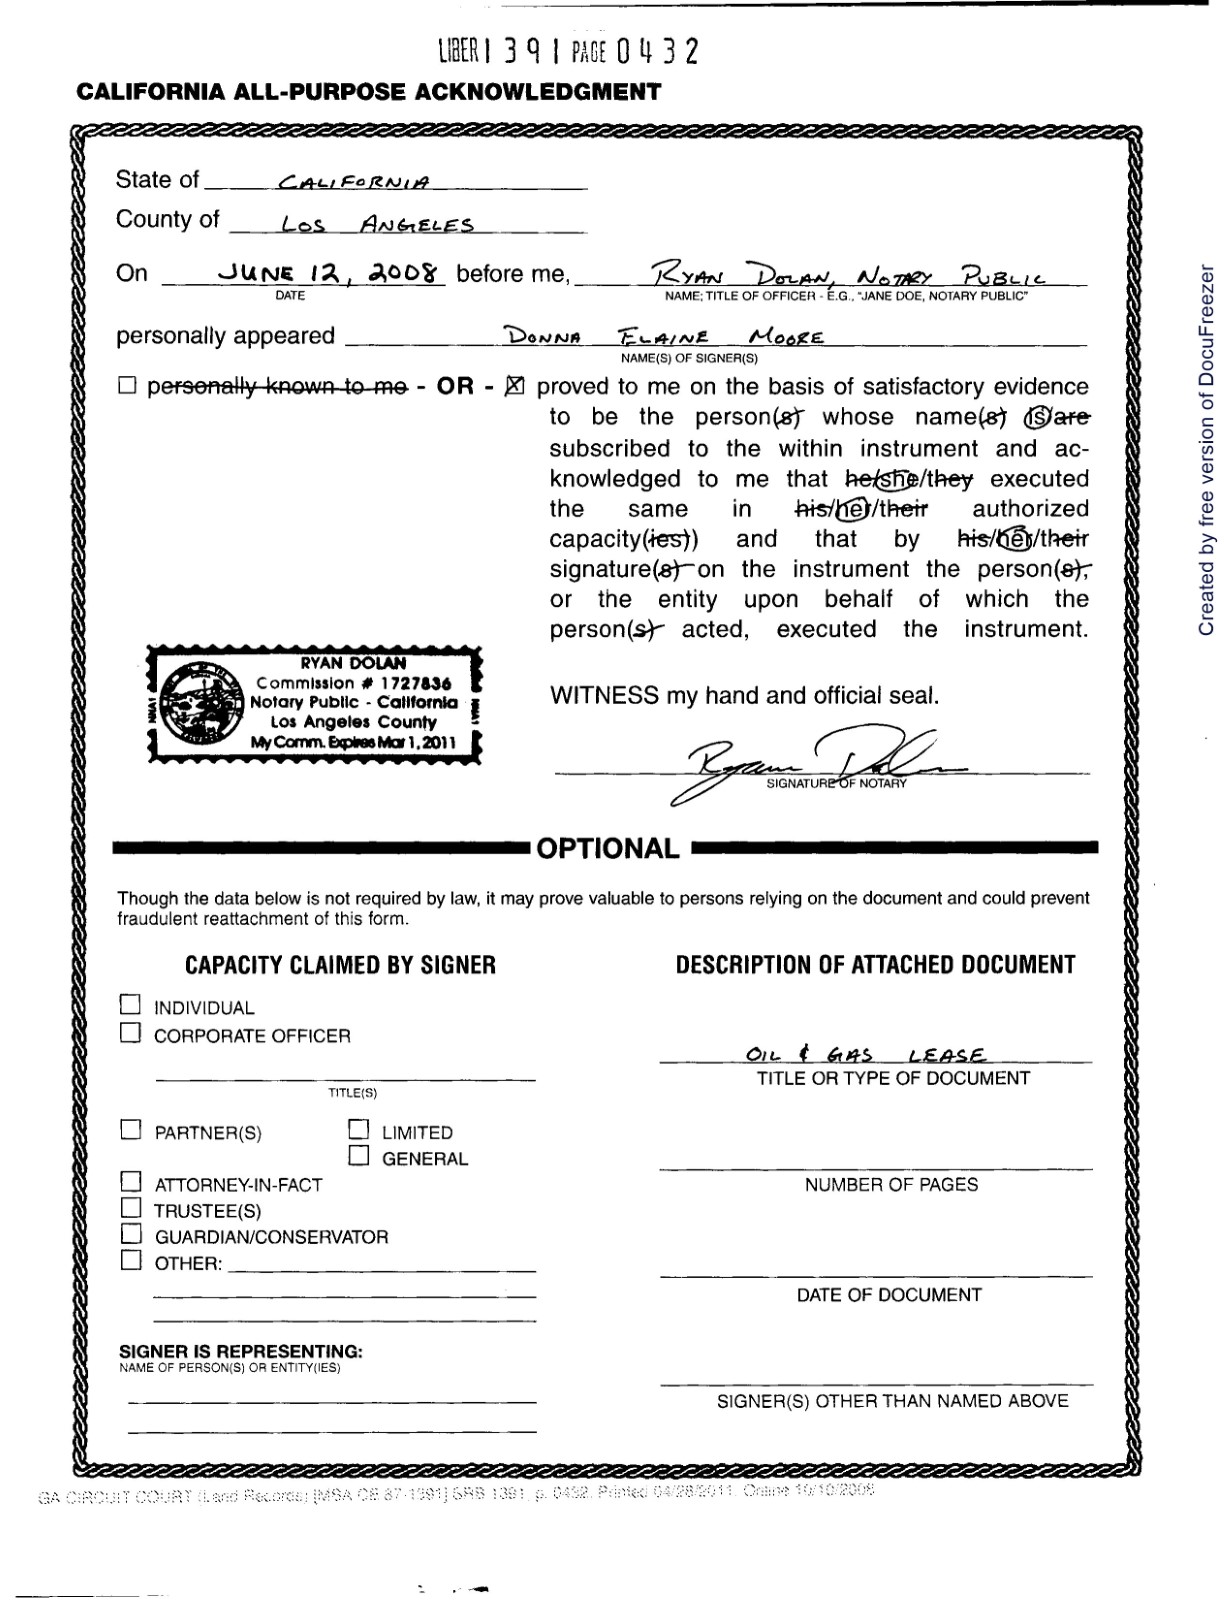 LIBER 1 3 9 1 PAGE 0 4 3 2
CALIFORNIA ALL-PURPOSE ACKNOWLEDGMENT
State of CALIFORNIA
County of LOS ANGELES
On JUNE 12, 2008 before me, RYAN DOLAN, NOTARY PUBLIC
DATE NAME; TITLE OF OFFICER - E.G., "JANE DOE, NOTARY PUBLIC"
personally appeared DONNA ELAINE MOORE
NAME(S) OF SIGNER(S)
☐ personally known to me - OR - ☒ proved to me on the basis of satisfactory evidence
to be the person(s) whose name(s) is/are
subscribed to the within instrument and ac-
knowledged to me that he/she/they executed
the same in his/her/their authorized
capacity(ies)) and that by his/her/their
signature(s) on the instrument the person(s),
or the entity upon behalf of which the
person(s) acted, executed the instrument.
RYAN DOLAN
Commission # 1727836
Notary Public - California
Los Angeles County
My Comm. Expires Mar 1, 2011
WITNESS my hand and official seal.
Ryan Dolan
SIGNATURE OF NOTARY
OPTIONAL
Though the data below is not required by law, it may prove valuable to persons relying on the document and could prevent
fraudulent reattachment of this form.
CAPACITY CLAIMED BY SIGNER
☐ INDIVIDUAL
☐ CORPORATE OFFICER
TITLE(S)
☐ PARTNER(S) ☐ LIMITED
☐ GENERAL
☐ ATTORNEY-IN-FACT
☐ TRUSTEE(S)
☐ GUARDIAN/CONSERVATOR
☐ OTHER:
SIGNER IS REPRESENTING:
NAME OF PERSON(S) OR ENTITY(IES)
DESCRIPTION OF ATTACHED DOCUMENT
OIL & GAS LEASE
TITLE OR TYPE OF DOCUMENT
NUMBER OF PAGES
DATE OF DOCUMENT
SIGNER(S) OTHER THAN NAMED ABOVE
GA CIRCUIT COURT (Land Records) [MSA CE 87-1391] GRB 1391, p. 0432. Printed 04/28/2011. Online 10/10/2008
Created by free version of DocuFreezer